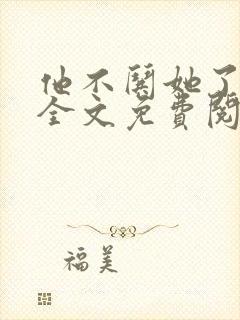 他不关她了
全文免费阅
福美